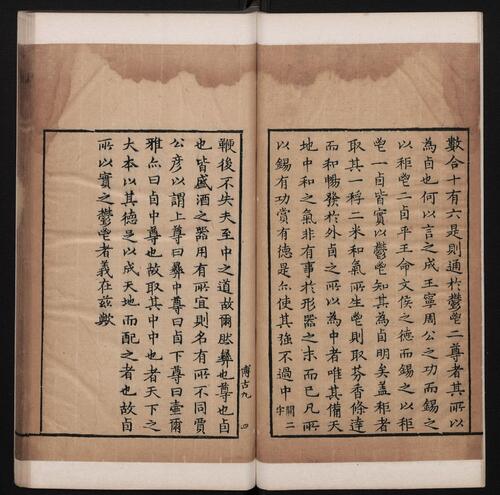 數合十有六是則通於鬱鬯二尊者其所以
為卣也何以言之成王寧周公之功而錫之
以秬鬯二卣平王命文侯之德而錫之以秬
鬯一卣皆實以鬱鬯知其為卣明矣蓋秬者
取其一稃二米和氣所生鬯則取芬香條達
而和暢發於外卣之所以為中者唯其備天
地中和之氣非有事於形器之末而已凡所
以錫有功賞有德是亦使其強不過中闕二字
博古九 四
鞭後不失夫至中之道故爾肰彝也尊也卣
也皆盛酒之器用有所宜則名有所不同賈
公彥以謂上尊曰彝中尊曰卣下尊曰壷爾
雅亦曰卣中尊也故取其中中也者天下之
大本以其德是以成天地而配之者也故卣
所以實之鬱鬯者義在兹歟